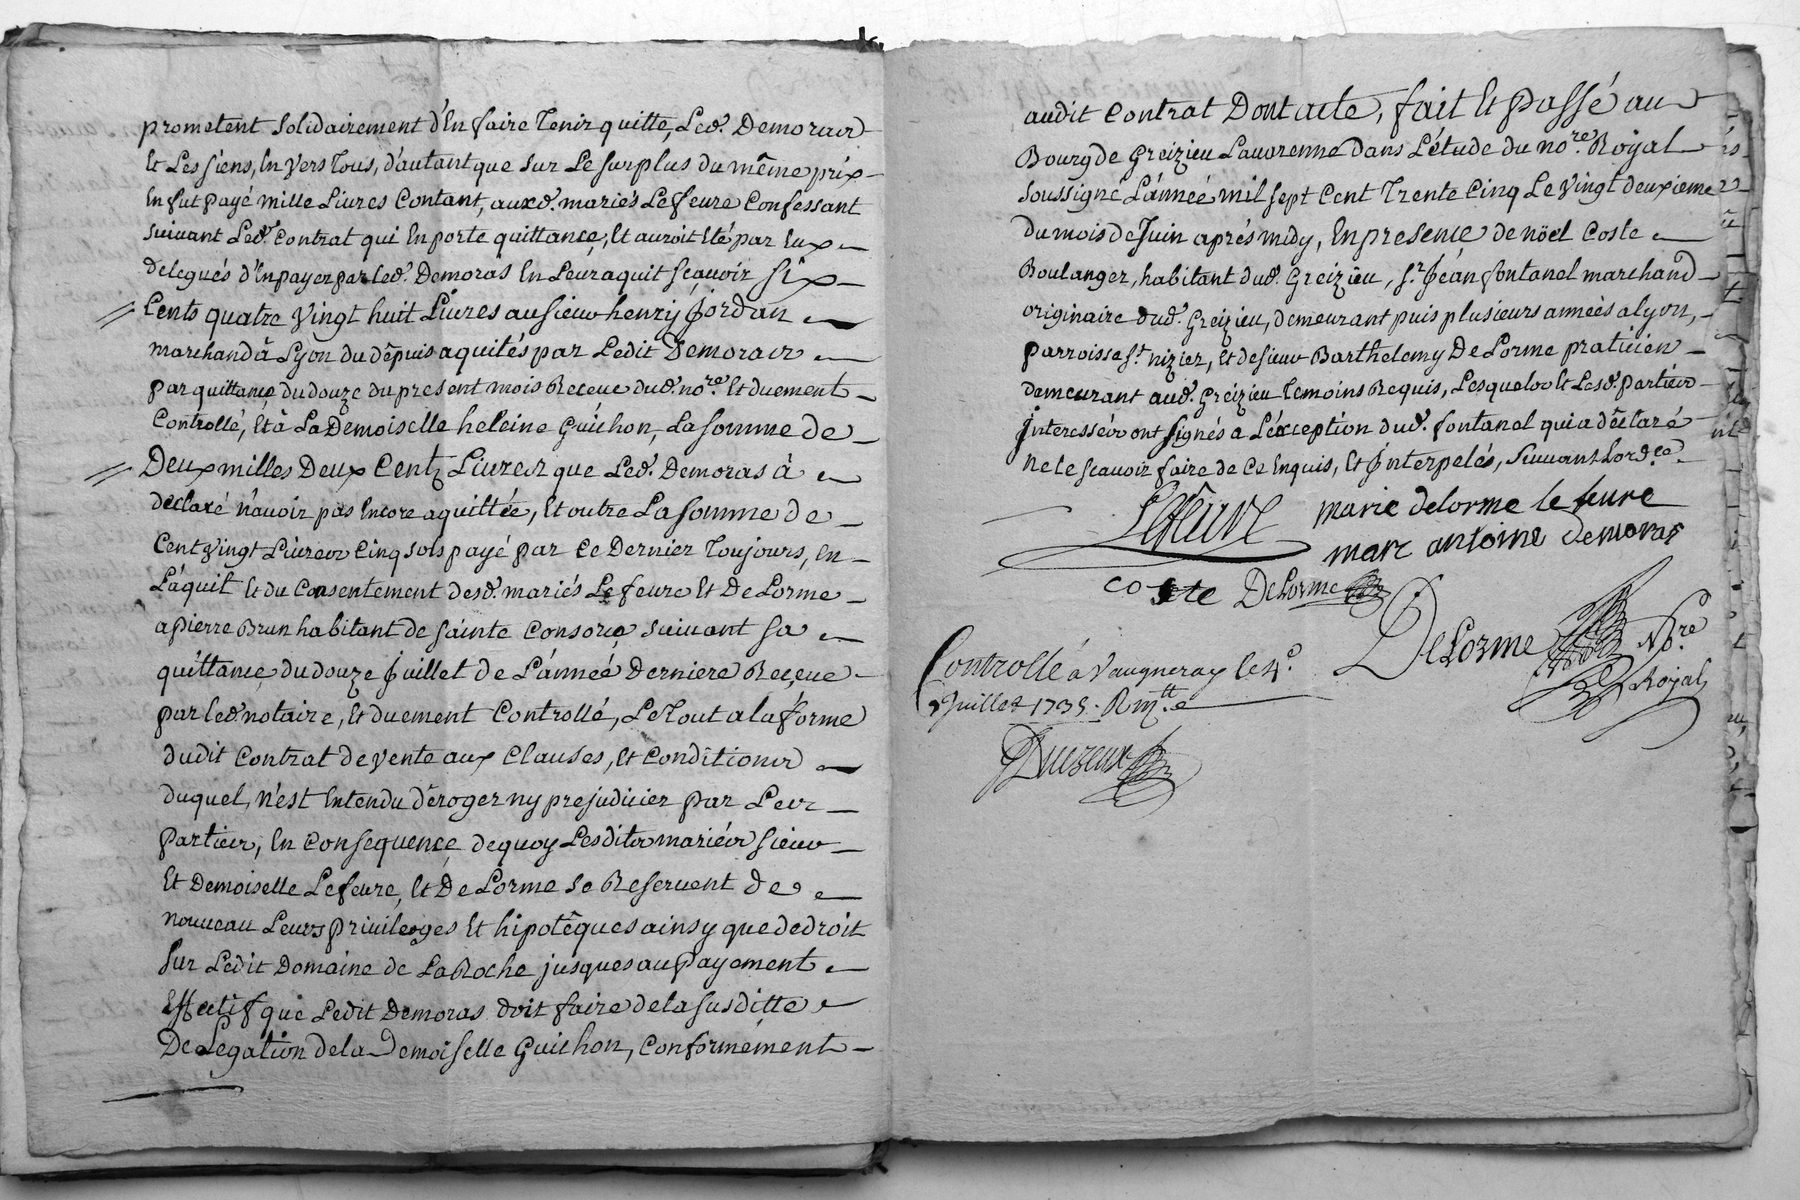 prometent solidairement d'En faire tenir quitte, Led. Demoras
Et Les siens, En vers tous, d'autant que sur Le surplus du même prix
En fut payé mille Livres Contant, aux d. mariés Lefevre Confessant
suivant Led. Contrat qui En porte quittance, Et auroit Eté par Eux
delegués d'En payer par Led. Demoras En Leur aquit scavoir six
Cents quatre vingt huit Livres au sieur henry Jordan
marchand à Lyon du depuis aquités par Ledit Demoras
par quittance du douze du present mois Receue dud. no.re Et duement
Controllé, Et à La Demoiselle heleine Guichon, La somme de
Deux milles Deux Cents Livres que Led. Demoras à
declaré n'avoir pas Encore aquittée, Et outre La somme de
Cent vingt Livres Cinq sols payé par Ce Dernier toujours, En
L'aquit Et du Consentement desd. mariés Lefevre Et De Lorme
a pierre Brun habitant de sainte Consorce suivant sa
quittance du douze Juillet de L'année Derniere Receue
par Led. notaire, Et duement Controllé, Le tout a la forme
dudit Contrat de vente aux Clauses, Et Conditions
duquel, n'est Entendu déroger ny prejudicier par Les
parties, En Consequence de quoy Lesdits mariés sieur
Et Demoiselle Lefevre, Et De Lorme se Reservent de
nouveau Leurs privileges Et hipotêques ainsy que de droit
sur Ledit Domaine de La Roche jusques au payement
Effectif que Ledit Demoras doit faire de la susditte
De Legation de la Demoiselle Guichon, Conformément
audit Contrat Dont acte, fait Et passé au
Bourg de Greizieu Lavarenne dans L'étude du no.re Royal
soussigné L'année mil sept Cent trente Cinq Le vingt deuxieme
du mois de Juin aprés midy, En presence de nöel Coste
Boulanger, habitant dud. Greizieu, s.r Jean fontanel marchand
originaire dud. Greizieu, demeurant puis plusieurs années a lyon,
parroisse s.t nizier, Et de sieur Barthelemy De Lorme praticien
demeurant aud. Greizieu temoins Requis, Lesquels Et Lesd. parties
Interessées ont signés a L'exception dud. fontanel qui a déclaré
ne le scavoir faire de Ce Enquis, Et Interpelés, suivant Lord.ce
Lefevre marie delorme le fevre
marc antoine demoras
coste Delorme
DeLorme N.re
Royal
Controllé à Vaugneray le 4.e
Juillet 1735. R
Ducreux